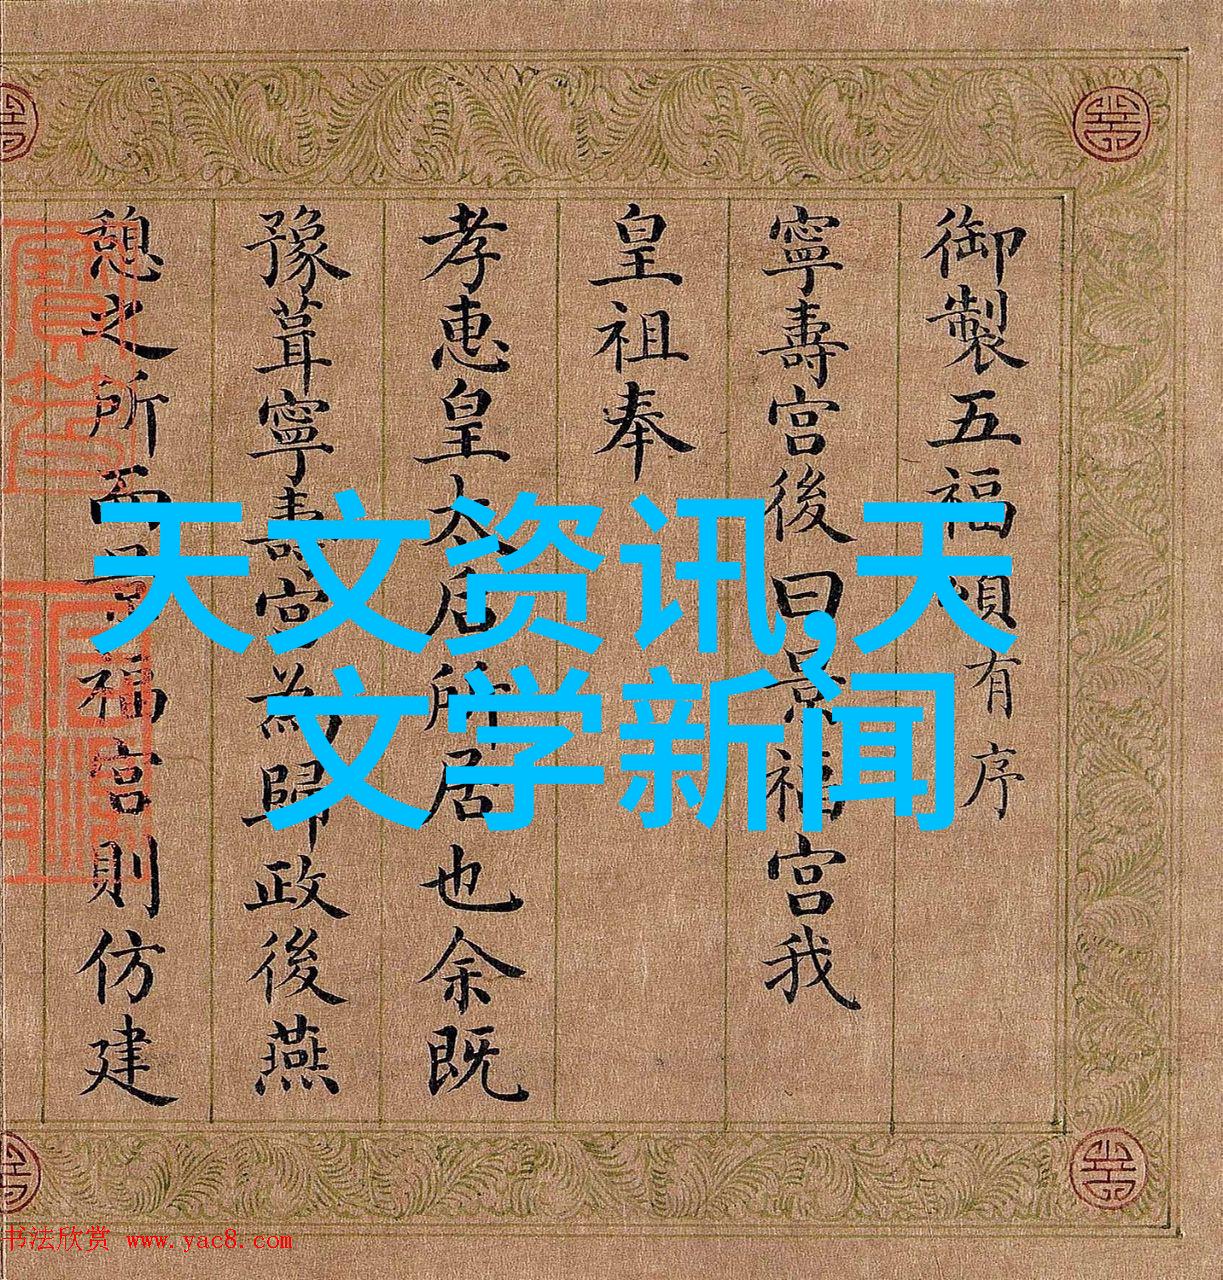 御製五福頌有序
寧壽宮後曰景福宮我
皇祖奉
孝惠皇太后所居也余既
豫葺寧壽宮為歸政後燕
憩之所而景福宮則仿建
天文资讯,天
文学新闻
书法欣赏 www.yac8.com